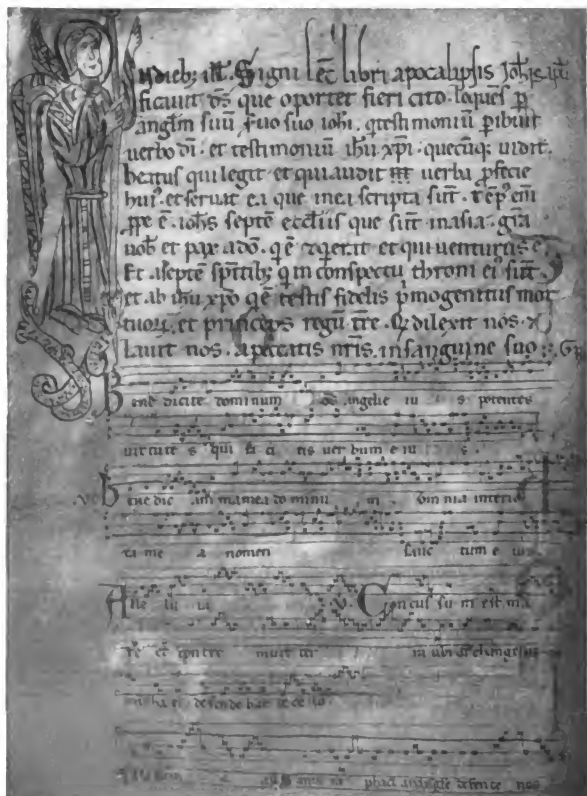 In dieb; ill. Signi lec̄ libri apocalipsis Joh̄is apl̄i
ficavit ds̄ que oportet fieri cito. loquēs p̄
angl̄m suū s̄uo suo ioh̄i. q̄ testimoniū p̄ibuit
verbo dī. et testimoniū ih̄u xp̄i. quecūq; vidit.
beatus qui legit et qui audit verba p̄fecie
hui'. et servat ea que in ea scripta sūt. tēp' em̄
p̄pe ē. ioh̄s septē eccl̄iis que sūt in asia. gr̄a
vob̄ et pax a dō. q̄ ē et q̄ erat et qui venturus ē
Et a septē sp̄itib; q̄ in conspectu throni ei' sūt
et ab ih̄u xp̄o q̄ ē testis fidelis p̄mogenitus mor
tuorū. et princeps regū tr̄e. q̄ dilexit nos. et
lavit nos. a peccatis nr̄is. in sanguine suo. Gr̄
Bene dicite dominum os̄ angeli e iu s. potentes
virtute s qui fa ci tis ver bum e iu s.
V. Bene dic anima mea do minu m omnia interio
ra me a nomen sanc tum e ius
Alle lu ia V. Concus su m est ma
re et contre muit ter ra ubi archangelus
mi cha el descende bat de ce lo
Alle luia phael archangele defende nos